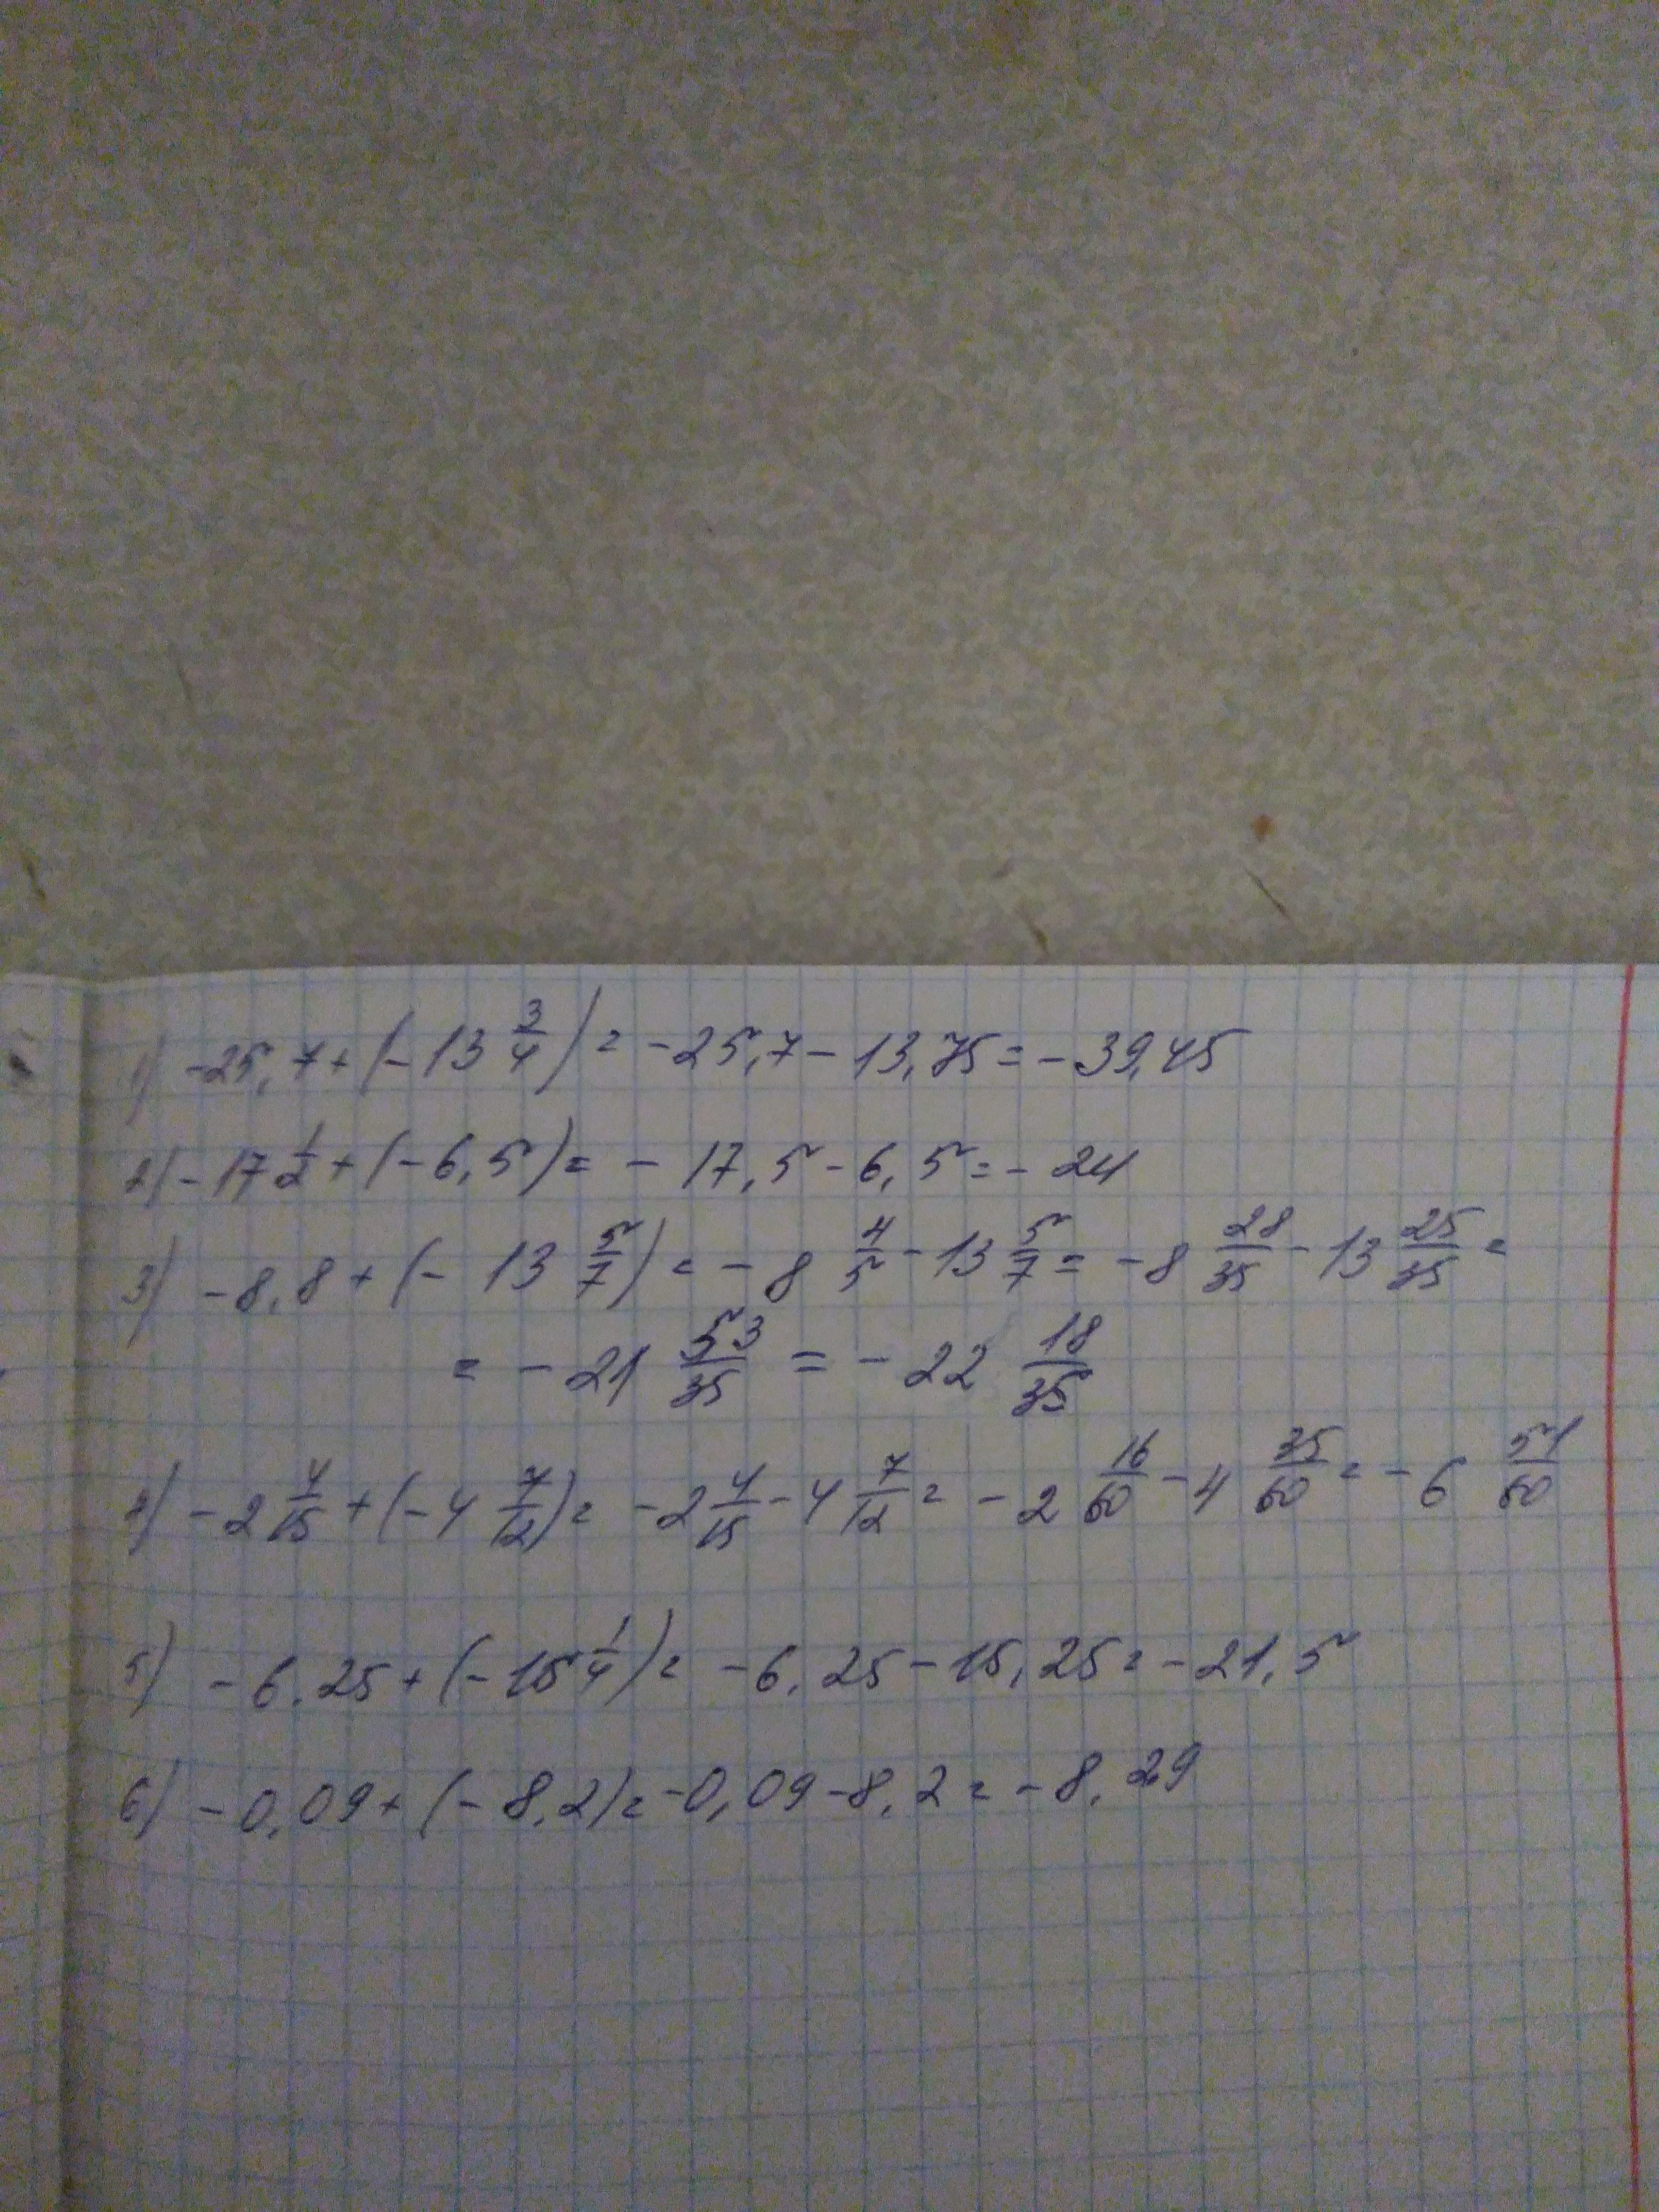 1) -25,7+(-13 3/4)=-25,7-13,75=-39,45
2) -17 1/2+(-6,5)=-17,5-6,5=-24
3) -8,8+(-13 5/7)=-8 4/5-13 5/7=-8 28/35-13 25/35=
=-21 53/35=-22 18/35
4) -2 4/15+(-4 7/12)=-2 4/15-4 7/12=-2 16/60-4 35/60=-6 51/60
5) -6.25+(-15 1/4)=-6,25-15,25=-21,5
6) -0,09+(-8,2)=-0,09-8,2=-8,29